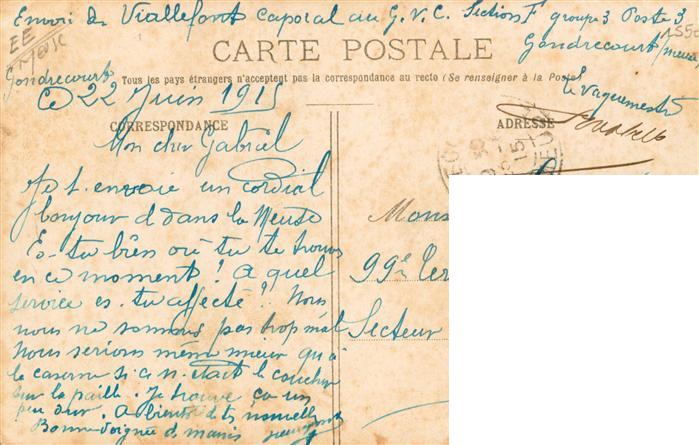 Envoi de Viallefont caporal au G.V.C. Section F groupe 3 Poste 3
Gondrecourt/meuse
EE
MEUSE
CARTE POSTALE
Tous les pays étrangers n'acceptent pas la correspondance au recto (Se renseigner à la Poste)
Gondrecourt
Ce 22 Juin 1915
Le vaguemestre
CORRESPONDANCE
ADRESSE
Mon cher Gabriel
Je t. envoie un cordial
bonjour d dans la Meuse
Es-tu bien où tu te trouves
en ce moment! A quel
service es. tu affecté? Nous
nous ne sommes pas trop mal
Nous serions même mieux qu'à
la caserne si ce n'était le coucher
sur la paille. Je trouve ça un
peu dur. A bientôt de tes nouvelles
Bonne poignée de mains
Mons
99e Terr
Secteur